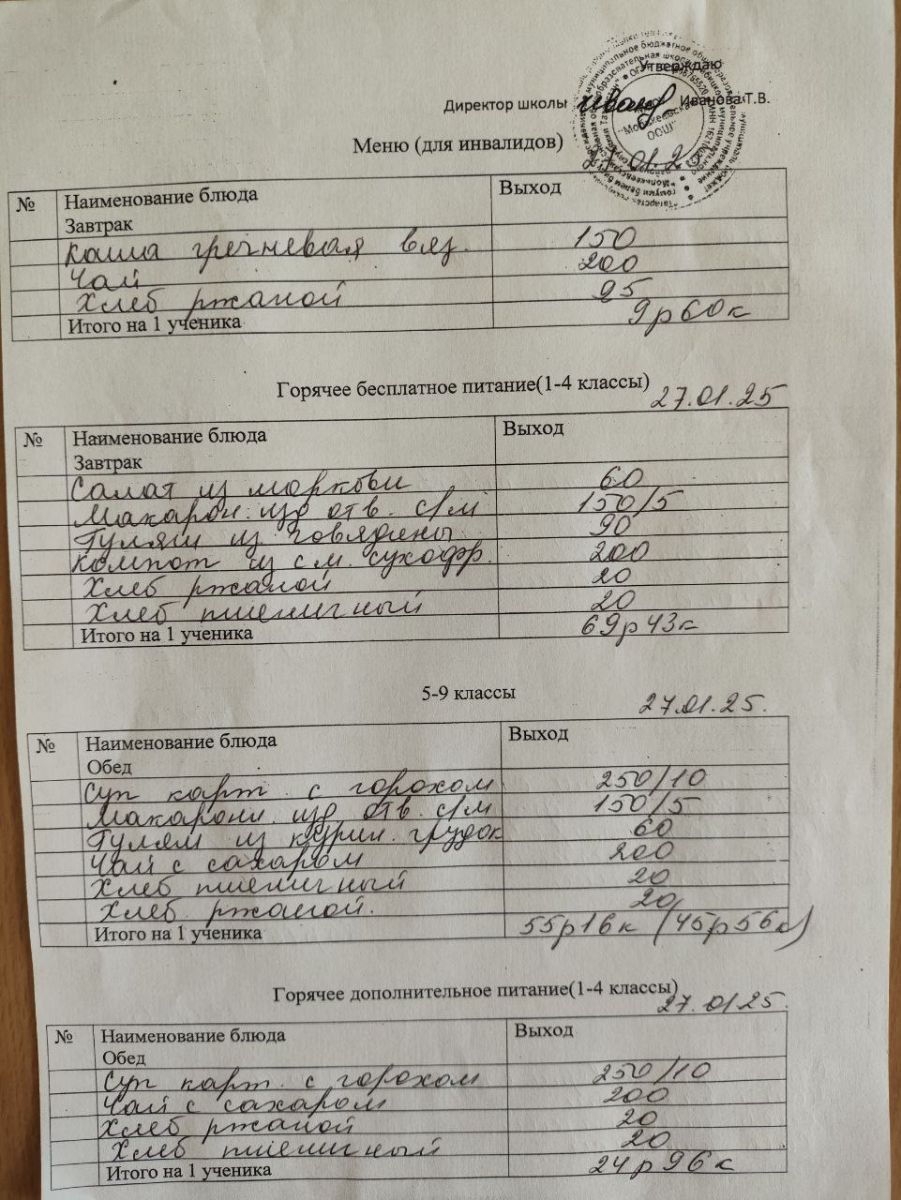 Утверждаю
Директор школы Иванова Т.В.
Меню (для инвалидов)
№ Наименование блюда Выход
Завтрак
Каша гречневая вяз. 150
Чай 200
Хлеб ржаной 25
Итого на 1 ученика 9р60к
Горячее бесплатное питание(1-4 классы) 27.01.25
№ Наименование блюда Выход
Завтрак
Салат из моркови 60
Макарон. изд отв. с/м 150/5
Гуляш из говядины 90
Компот из см. сухофр. 200
Хлеб ржаной 20
Хлеб пшеничный 20
Итого на 1 ученика 69р43к
5-9 классы 27.01.25.
№ Наименование блюда Выход
Обед
Суп карт. с горохом 250/10
Макарон. изд отв. с/м 150/5
Гуляш из курин. грудок 60
Чай с сахаром 200
Хлеб пшеничный 20
Хлеб ржаной. 20
Итого на 1 ученика 55р16к (45р56к)
Горячее дополнительное питание(1-4 классы) 27.01.25.
№ Наименование блюда Выход
Обед
Суп карт. с горохом 250/10
Чай с сахаром 200
Хлеб ржаной 20
Хлеб пшеничный 20
Итого на 1 ученика 24р96к